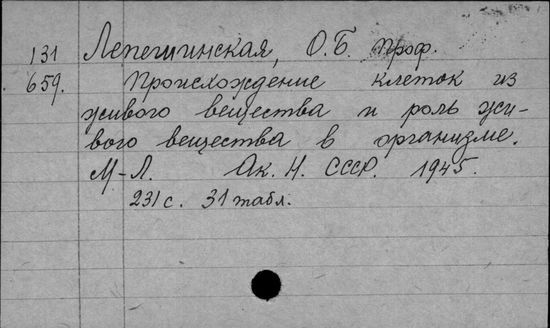 131 Лепешинская, О.Б. проф.
659. Происхождение клеток из
живого вещества и роль жи-
вого вещества в организме.
М-Л. Ак. Н. СССР. 1945.
231 с. 31 табл.